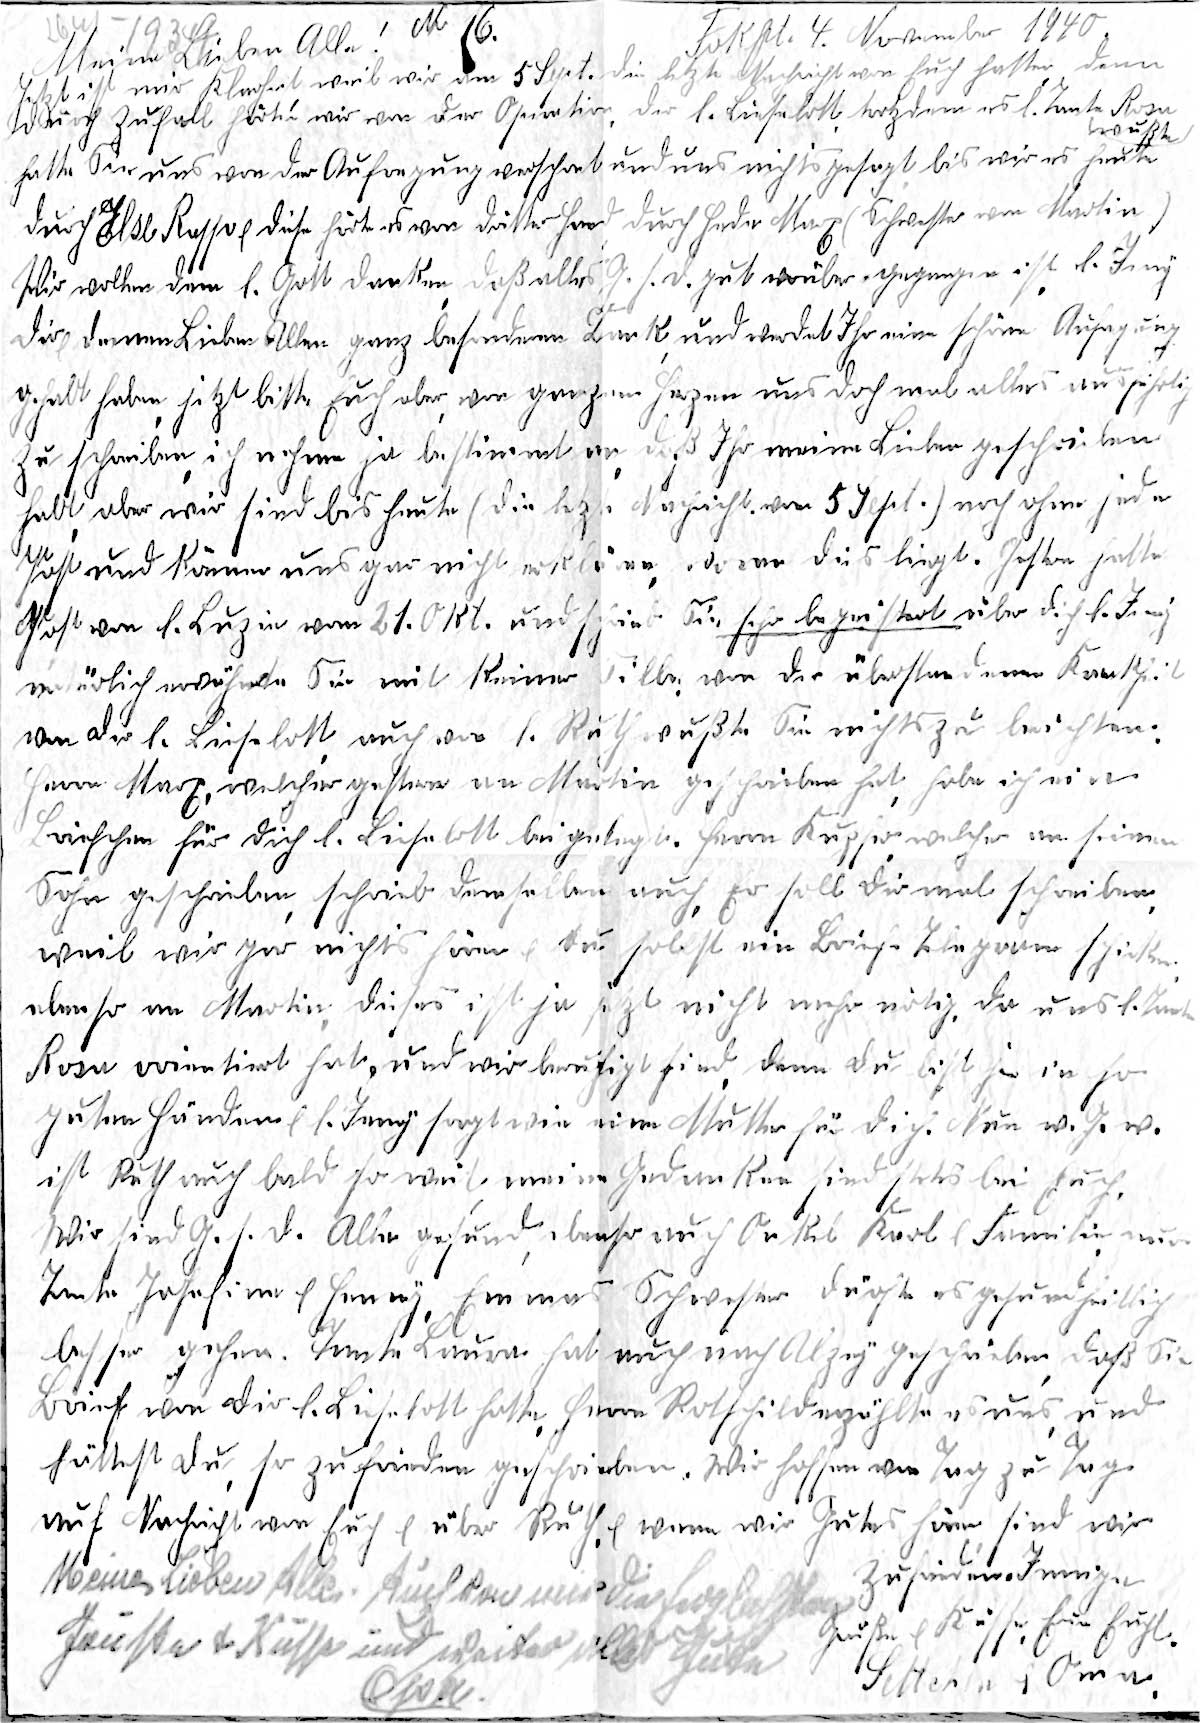 1934
Meine Lieben Alle! № 6. Frkft. 4. November 1940.
Jetzt ist mir Klarheit weil wir am 5 Sept. die letzte Nachricht von Euch hatten, denn
durch Zufall hörten wir von der Operation, der l. Lieselott, trotzdem es l. Tante Rosa
wußte
hatte Sie uns von der Aufregung verschont und uns nichts gesagt bis wir es heute
durch Else diese hörte es von dritter Hand durch Marx (Schwester von Martin)
Wir wollen dem l. Gott danken, daß alles G. s. D. gut vorüber gegangen ist, l. Jeny
Dir & deinen Lieben Allen ganz besonderen Dank, und werdet Ihr eine schöne Aufregung
gehabt haben, jetzt bitte Euch aber, von ganzem Herzen uns doch mal alles ausführlich
zu schreiben, ich nehme ja bestimmt an, daß Ihr meine Lieben geschrieben
habt, aber wir sind bis heute (die letzte Nachricht vom 5 Sept.) noch ohne jede
Post und können uns gar nicht erklären, woran dies liegt. Gestern hatte
Post von l. Luzie vom 21. Okt. und schrieb Sie, sehr begeistert über dich l. Jeny
natürlich erwähnte Sie mit keiner Silbe, von der überstandenen Krankheit
von dir l. Lieselott, auch von l. Ruth wußte Sie nichts zu berichten.
Herrn Marx, welcher gestern an Martin geschrieben hat, habe ich ein
Briefchen für dich l. Lieselott beigelegt. Herrn welcher an seinen
Sohn geschrieben, schrieb demselben auch, Er soll dir mal schreiben,
weil wir gar nichts hören & Du sollst ein Brief-Telegramm schicken,
ebenso an Martin, dieses ist ja jetzt nicht mehr nötig, da uns l. Tante
Rosa orientiert hat, und wir beruhigt sind, denn du bist ja in so
guten Händen & l. Jeny sorgt wie eine Mutter für dich. Nun w. G. w.
ist Ruth auch bald so weit, meine Gedanken sind stets bei Euch.
Wir sind G. s. D. Alle gesund, ebenso auch Onkel Karl & Familie, nur
Tante Josefine & Henny, Emmas Schwester dürfte es gesundheitlich
besser gehen. Tante Laura hat auch nach Alzey geschrieben, daß Sie
Brief von dir l. Lieselott hatte, Herrn Rotschild erzählte es uns, und
hättest Du, so zufrieden geschrieben. Wir hoffen von Tag zu Tag
auf Nachricht von Euch & über Ruth, & wenn wir Gutes hören sind wir
zufrieden. Innige
Grüße & Küsse, Eure Euchl.
& Oma.
Meine Lieben Alle. Auch von mir die herzlichsten
Grüße & Küsse und weiter alles Gute